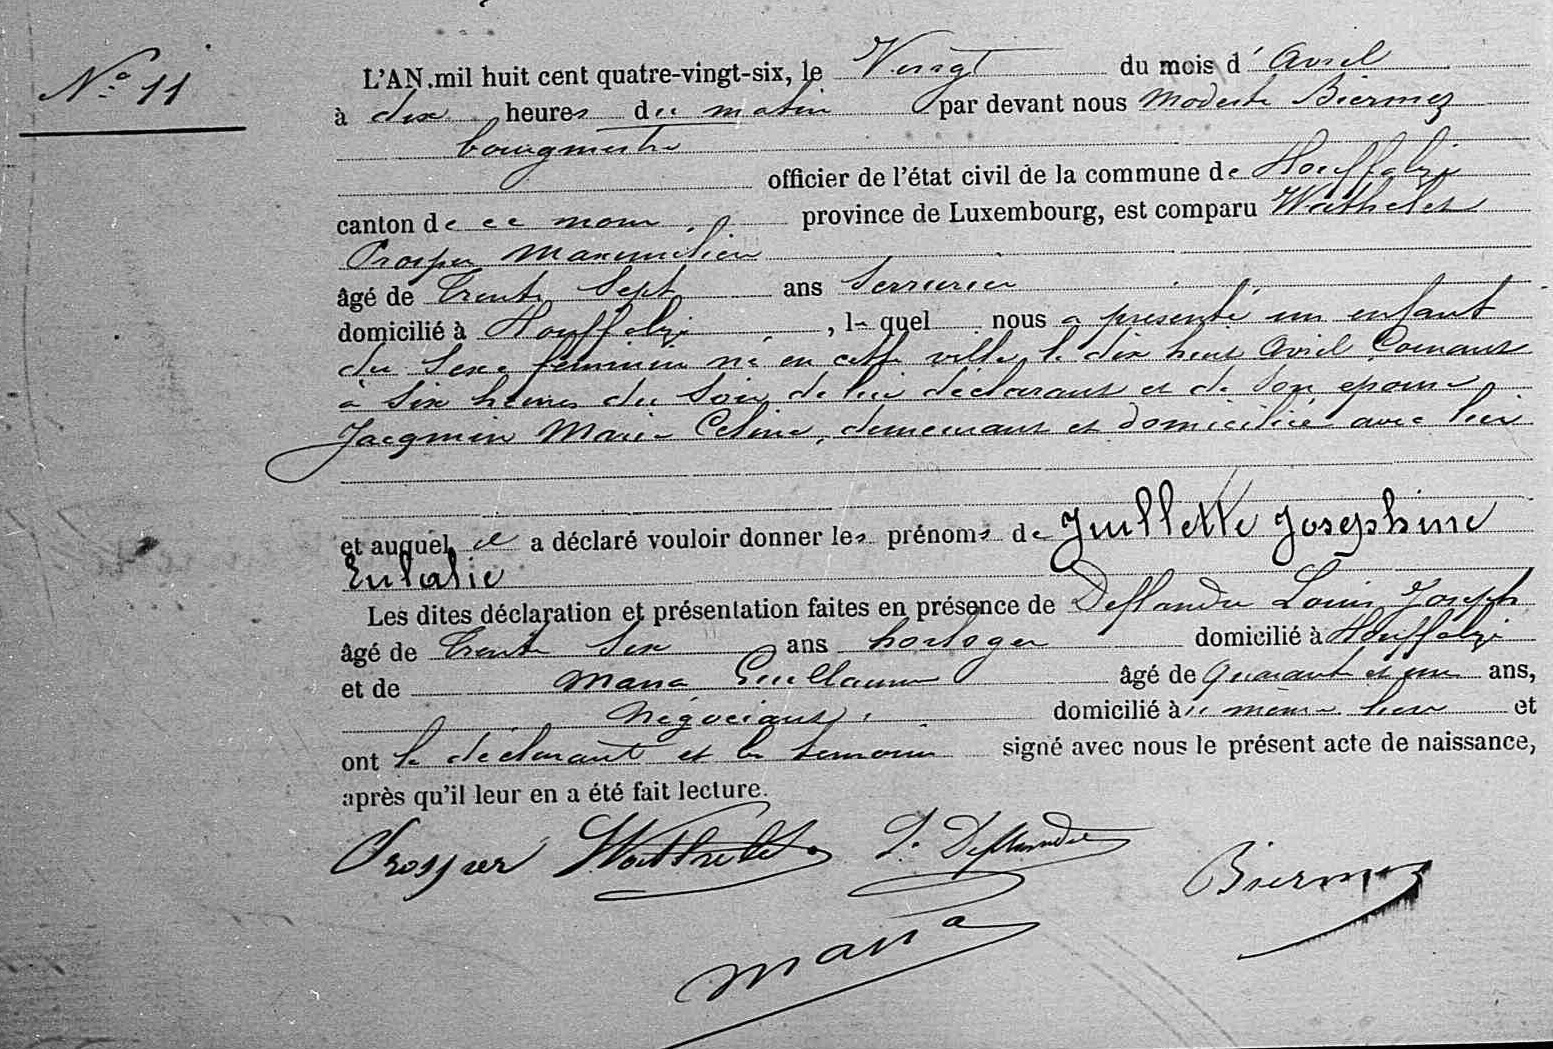 N° 11
L'AN mil huit cent quatre-vingt-six, le Vingt du mois d'avril
à dix heures du matin par devant nous Modeste Biermez
bourgmestre
officier de l'état civil de la commune de Houffalize
canton de ce nom, province de Luxembourg, est comparu Wathelet
Prosper Maximilien
âgé de trente sept ans Serrurier
domicilié à Houffalize, lequel nous a présenté un enfant
du sexe féminin né en cette ville, le dix huit avril courant
à six heures du soir, de lui déclarant et de son épouse
Jacqmin Marie Celine, demeurant et domiciliée avec lui
et auquel il a déclaré vouloir donner les prénoms de Juillette Josephine
Eulalie
Les dites déclaration et présentation faites en présence de Deflandre Louis Joseph
âgé de trente six ans horloger domicilié à Houffalize
et de Mana Guillaume âgé de quarant et un ans,
négociant, domicilié à même lieu et
ont le déclarant et les temoins signé avec nous le présent acte de naissance,
après qu'il leur en a été fait lecture.
Prosper Wathelet L. Deflandre Biermez
Mana